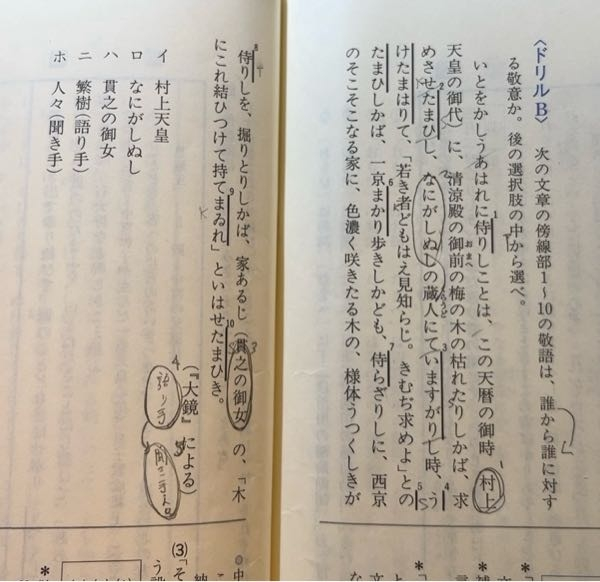 〈ドリルB〉 次の文章の傍線部1～10の敬語は、誰から誰に対す
る敬意か。後の選択肢の中から選べ。
いとをかしうあはれに侍りしことは、この天暦の御時(村上
天皇の御代)に、清涼殿の御前の梅の木の枯れたりしかば、求
めさせたまひし、なにがしぬしの蔵人にていますがりし時、う
けたまはりて、「若き者どもはえ見知らじ。きむぢ求めよ」との
たまひしかば、一京まかり歩きしかども、侍らざりしに、西京
のそこそこなる家に、色濃く咲きたる木の、様体うつくしきが
侍りしを、掘りとりしかば、家あるじ(貫之の御女)の、「木
にこれ結ひつけて持てまゐれ」といはせたまひき。
(『大鏡』による)
語り手
聞き手
イ 村上天皇
ロ なにがしぬし
ハ 貫之の御女
ニ 繁樹(語り手)
ホ 人々(聞き手)
(3)
「そ
う設